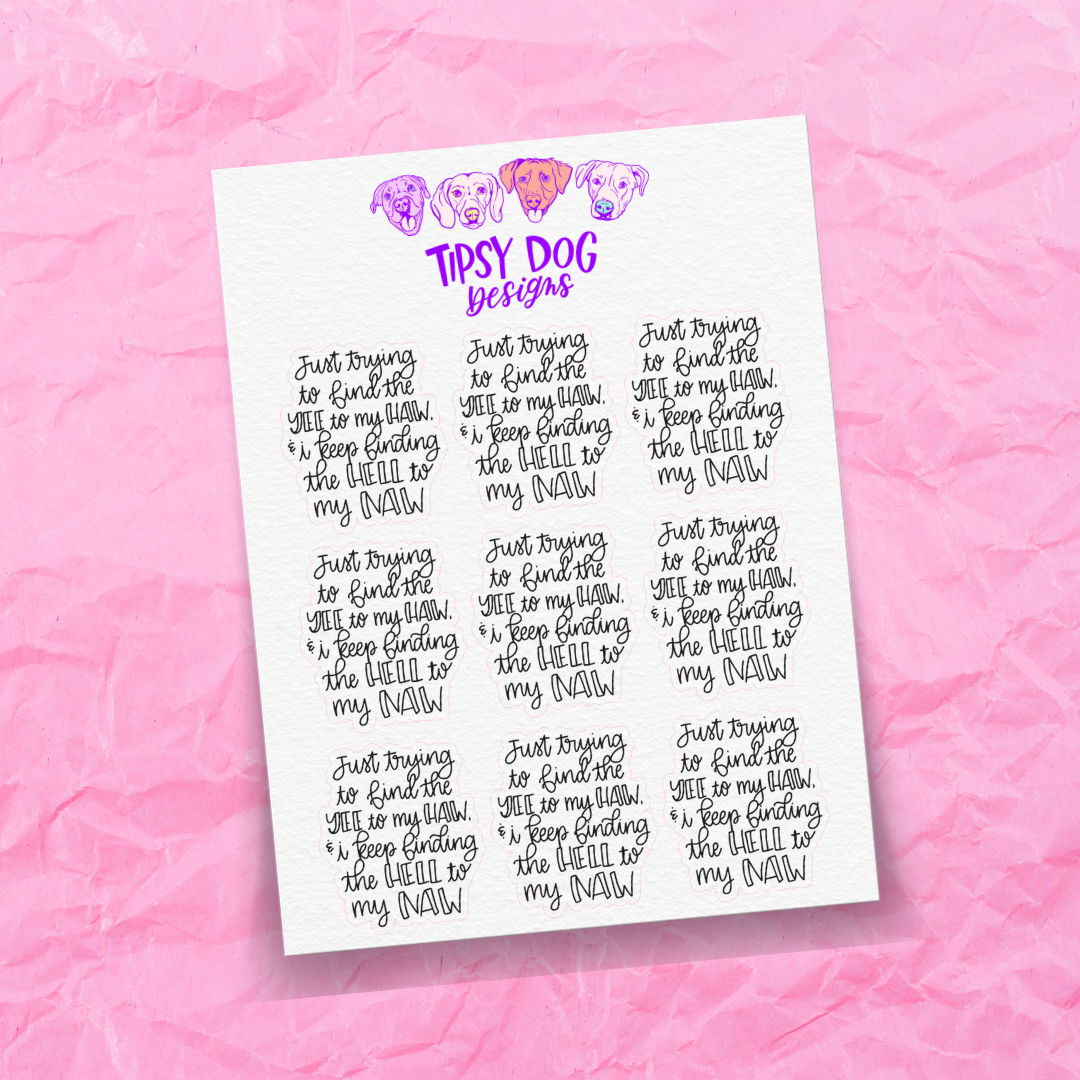 TIPSY DOG
Designs
Just trying
to find the
YEE to my HAW,
& i keep finding
the HELL to
my NAW
Just trying
to find the
YEE to my HAW,
& i keep finding
the HELL to
my NAW
Just trying
to find the
YEE to my HAW,
& i keep finding
the HELL to
my NAW
Just trying
to find the
YEE to my HAW,
& i keep finding
the HELL to
my NAW
Just trying
to find the
YEE to my HAW,
& i keep finding
the HELL to
my NAW
Just trying
to find the
YEE to my HAW,
& i keep finding
the HELL to
my NAW
Just trying
to find the
YEE to my HAW,
& i keep finding
the HELL to
my NAW
Just trying
to find the
YEE to my HAW,
& i keep finding
the HELL to
my NAW
Just trying
to find the
YEE to my HAW,
& i keep finding
the HELL to
my NAW